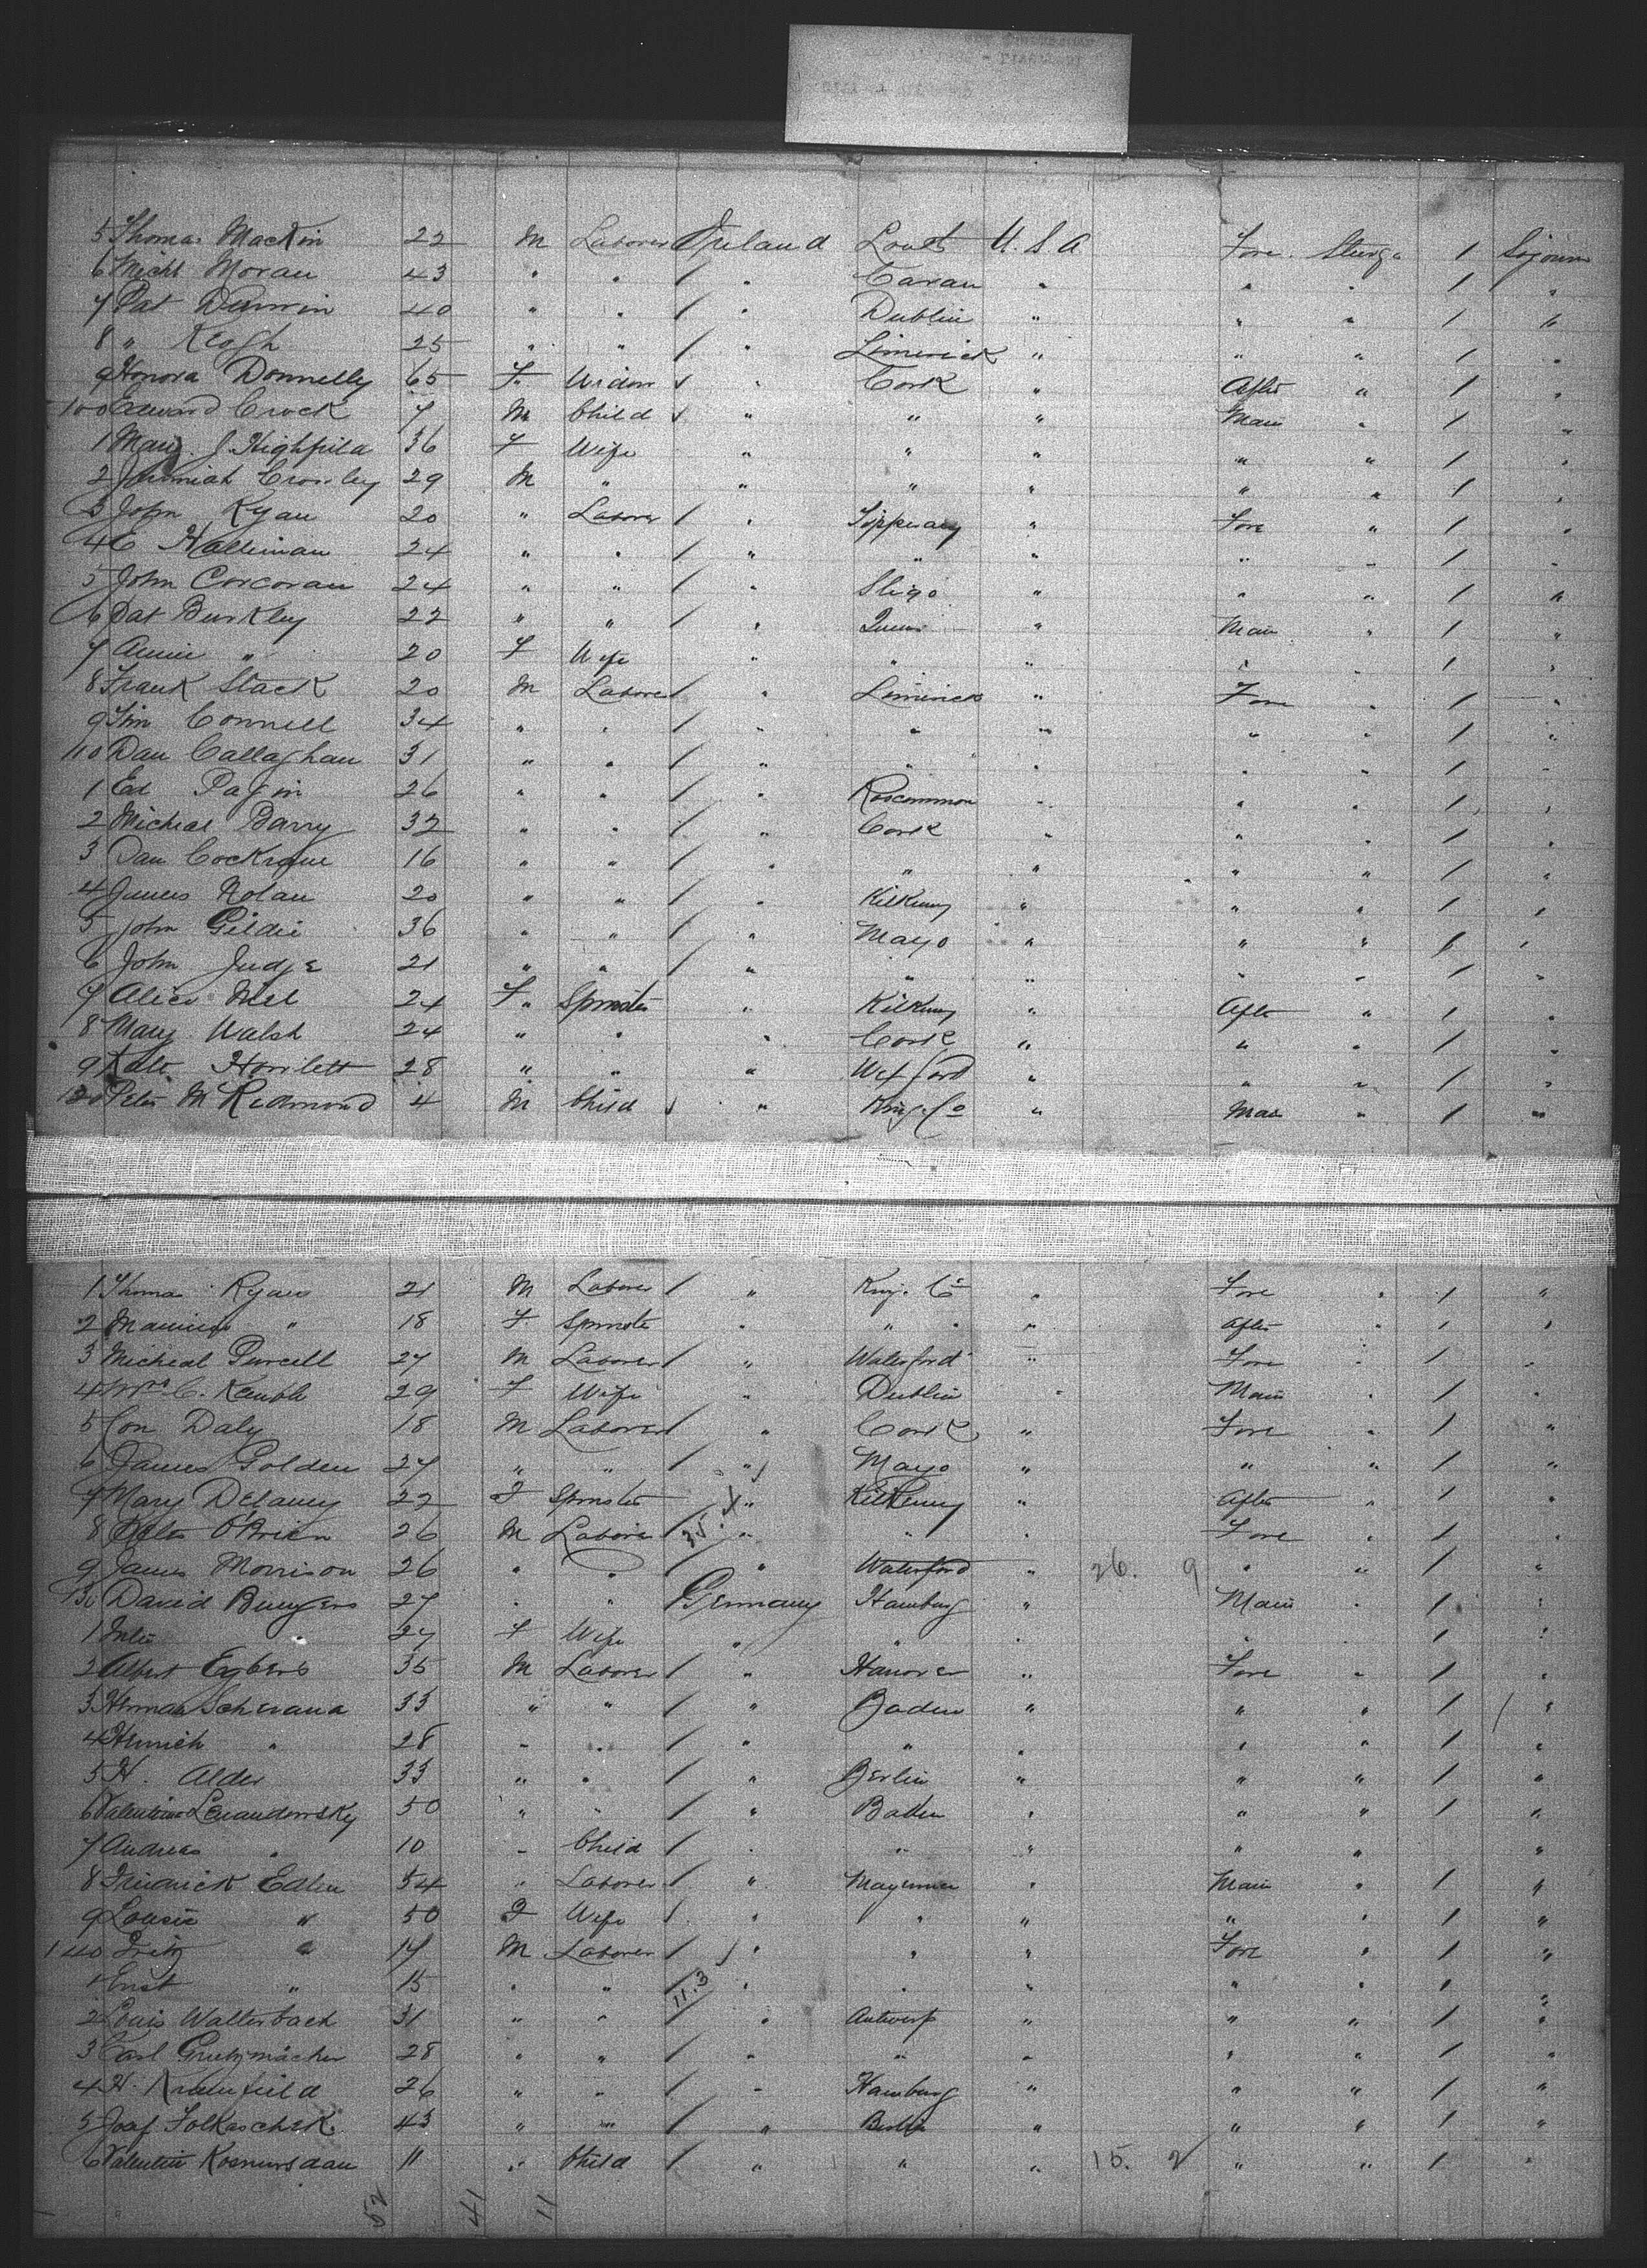 5 Thomas Mackin 22 M Laborer Ireland Louth U.S.A Fore Steerge 1 Sojourn
6 Michl Moran 43 " " / " Cavan " " " 1 "
7 Pat 40 " " / " Dublin " " " 1 "
8 " Keogh 25 " " / " Limerick " " " 1 "
9 Honora Donnelly 65 F Widow " Cork " After " 1 "
100 Edward Crock 7 M Child " " " Main " 1 "
1 Mary J. Highfild 36 F Wife " " " " " 1 "
2 Jeremiah Crowley 29 M " " " " " " 1 "
3 John Ryan 20 " Laborer / " Tipperary " Fore " 1 "
4 C Hallinan 24 " " / " " " " " 1 "
5 John Corcoran 24 " " / " Sligo " " " 1 "
6 Pat Burkley 22 " " / " Queens " Main " 1 "
7 Annie " 20 F Wife " " " " " 1 "
8 Frank Stack 20 M Laborer / " Limerick " Fore " 1 "
9 Tim Connell 34 " " / " " " " " 1 "
110 Dan Callaghan 31 " " / " " " " " 1 "
1 Ed 26 " " / " Roscommon " " " 1 "
2 Micheal Barry 32 " " / " Cork " " " 1 "
3 Dan Cockrane 16 " " / " " " " " 1 "
4 James Nolan 20 " " / " Kilkenny " " " 1 "
5 John Gildie 36 " " / " Mayo " " " 1 "
6 John Judge 21 " " / " " " " " 1 "
7 Alice 24 F Spinster " Kilkenny " After " 1 "
8 Mary Walsh 24 " " " Cork " " " 1 "
9 Kate Howlett 28 " " " Wexford " " " 1 "
120 Peter M Redmond 4 M Child " Kings Co " Main " 1 "
1 Thomas Ryan 21 M Laborer / " Kings Co " Fore " 1 "
2 " 18 F Spinster " " " " After " 1 "
3 Micheal Purcell 27 M Laborer / " Waterford " Fore " 1 "
4 Mrs C. Kemble 29 F Wife " Dublin " Main " 1 "
5 Con Daly 18 M Laborer / " Cork " Fore " 1 "
6 James Golden 27 " " / " Mayo " " " 1 "
7 Mary Delaney 22 F Spinster " Kilkenny " After " 1 "
8 Peter O'Brien 26 M Laborer / 35.4 " " " Fore " 1 "
9 James Morrison 26 " " / " Waterford " 26. 9 " " 1 "
130 David Bungers 27 " " Germany Hamburg " Main " 1 "
1 " 27 F Wife " " " " 1 "
2 Albert Egbers 35 M Laborer / " Hanover " Fore " 1 "
3 Herman Schwana 33 " " / " Baden " " " 1 / "
4 Heinrich " 28 " " / " " " " " 1 "
5 H. Alder 33 " " / " Berlin " " " 1 "
6 Valentine Lewandowsky 50 " " / " Baden " " " 1 "
7 Andreas " 10 " Child / " " " " " "
8 Friedrick Edlen 54 " Laborer / " " Main " 1 "
9 Lousie " 50 F Wife / " " " " " 1 "
140 Fritz " 17 M Laborer / " " " Fore " 1 "
1 Ernst " 15 " " / 11.3 " " " " " 1 "
2 Louis Walterbach 31 " " / " Antwerp " " " 1 "
3 Carl Grutzmacher 28 " " / " " " " " 1 "
4 H. 26 " " / " Hamburg " " " 1 "
5 Josef 43 " " / " Berlin " " " 1 "
6 Valentin 11 " Child / " " " 15. 2 " " 1 "
52 41 11